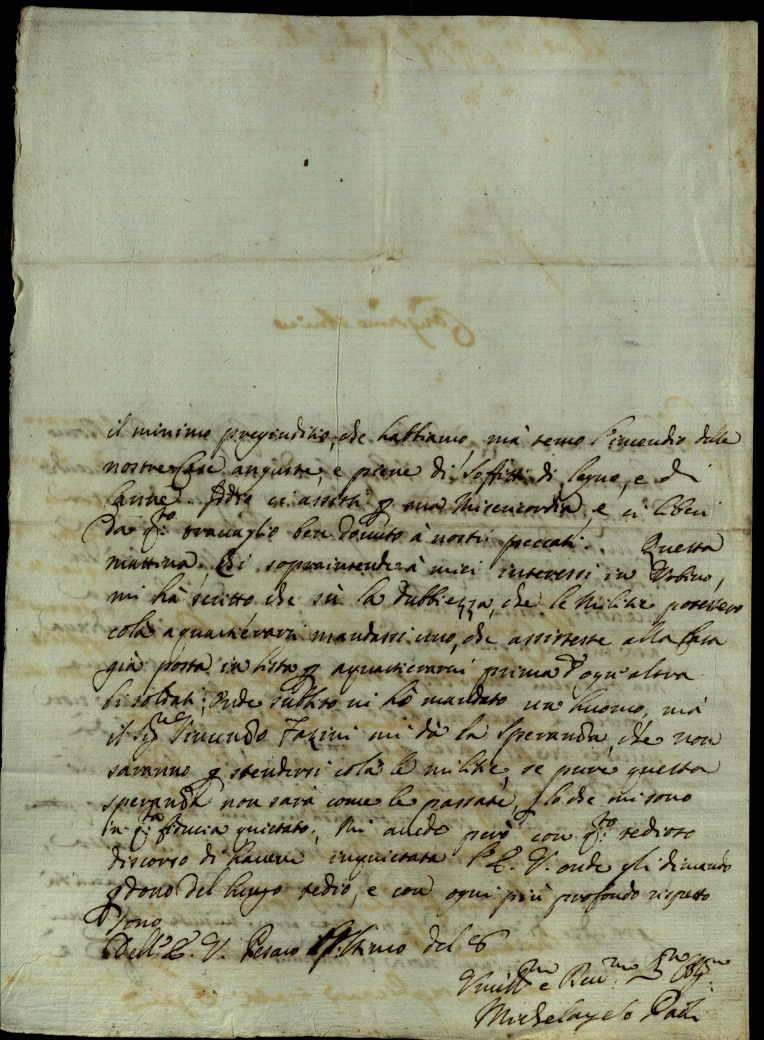 il minimo pregiuditio, che habbiamo, mà temo l'incendio delle
nostre Case anguste, e piene di soffitti di legno, e di
Canne. Iddio ci assisti p sua Misericordia, e ci liberi
da q.to travaglio ben dovuto à nostri peccati. Questa
mattina, chi sopraintende à miei interessi in Urbino,
mi hà scritto che sù la dubbiezza, che le Militie potessero
colà aquartierarsi mandassi uno, che assistesse alla Casa
già posta in lista p aquartierarvi prima d'ogn'altra
li soldati; onde subito vi hò mandato un huomo, mà
il Sig.r Fazini mi dà la speranza, che non
saranno p stendersi colà le militie, se pure questa
speranza non sarà come le passate, lo che mi sono
in q.ta fiducia quietato; Mi avedo però con q.to tedioso
discorso di havere inquietata l'E. V. onde gli dimando
pdono del lungo tedio, e con ogni più profondo rispetto
sono
Dell'E. V. Pesaro ultimo del
Umill.mo e
Michelangelo